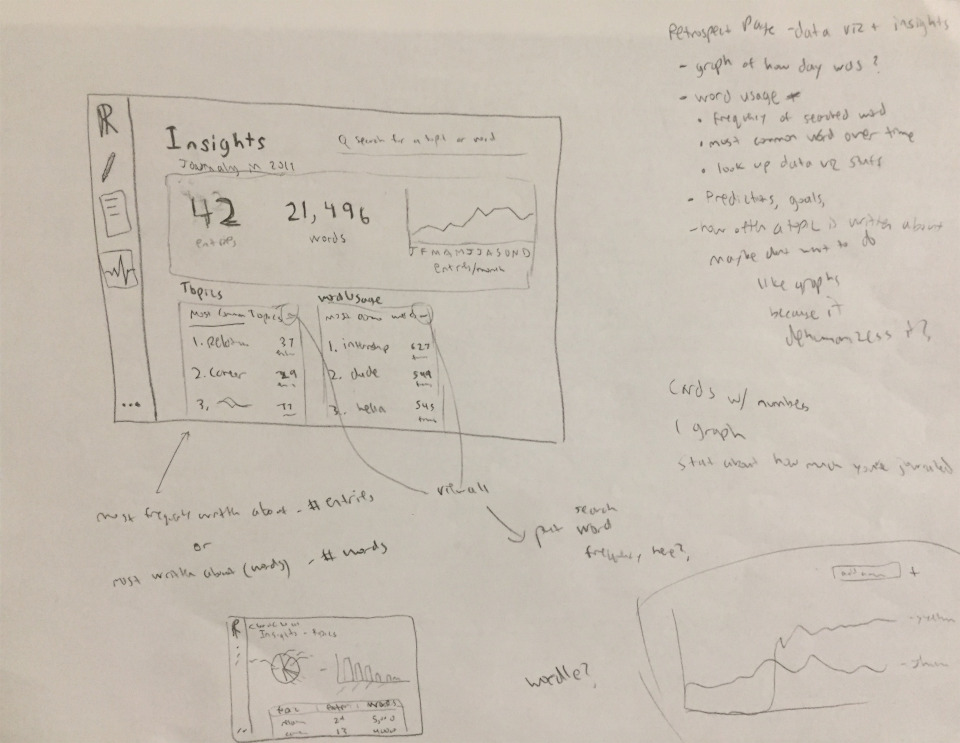 Retrospect Page - data viz + insights
- graph of how day was?
- word usage
• frequency of searched word
• most common word over time
• look up data viz stuff
- Predictors, goals,
- how often a topic is written about
maybe dont want to do
like graphs
because it
dehumanizes it?
R
Insights
Q search for a topic or word
Journaling in 2017
42
entries
21,496
words
J F M A M J J A S O N D
entries/month
Topics
Most Common Topics
1.
37
2. Career
29
3.
Word Usage
Most common words
1. internship
627
2. dude
549
3.
545
...
view all
most frequently written about - # entries
or
most written about (words) - # words
put search
word
frequency here?
cards w/ numbers
1 graph
stat about how much you've journaled
R
Insights - topics
entries
words
24
5,000
13
wordle?
+